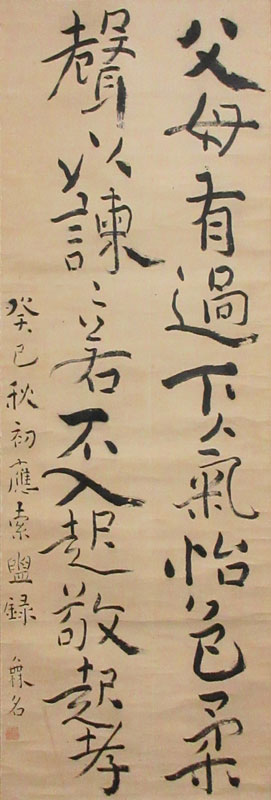 父母有過下氣怡色柔
聲以諫々若不入起敬起孝
癸巳秋初應索盥録